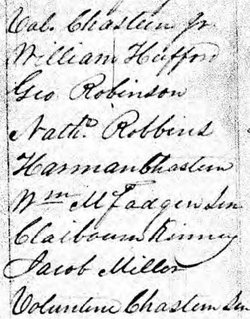 Val. Chastein Jr
William Hufford
Geo Robinson
Nathl. Robbins
Harman Chastein
Wm McFadgen Sen
Claibourn Kinney
Jacob Miller
Voluntine Chastein Sen